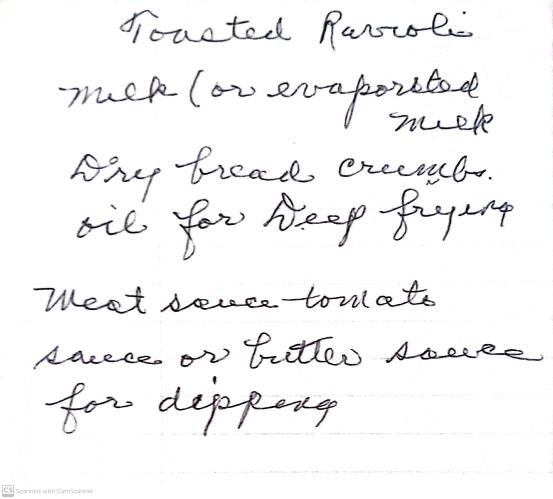 Toasted Ravioli
Milk (or evaporated
milk
Dry bread crumbs.
oil for Deep frying
Meat sauce-tomato
sauce or butter sauce
for dipping
CS Scanned with CamScanner